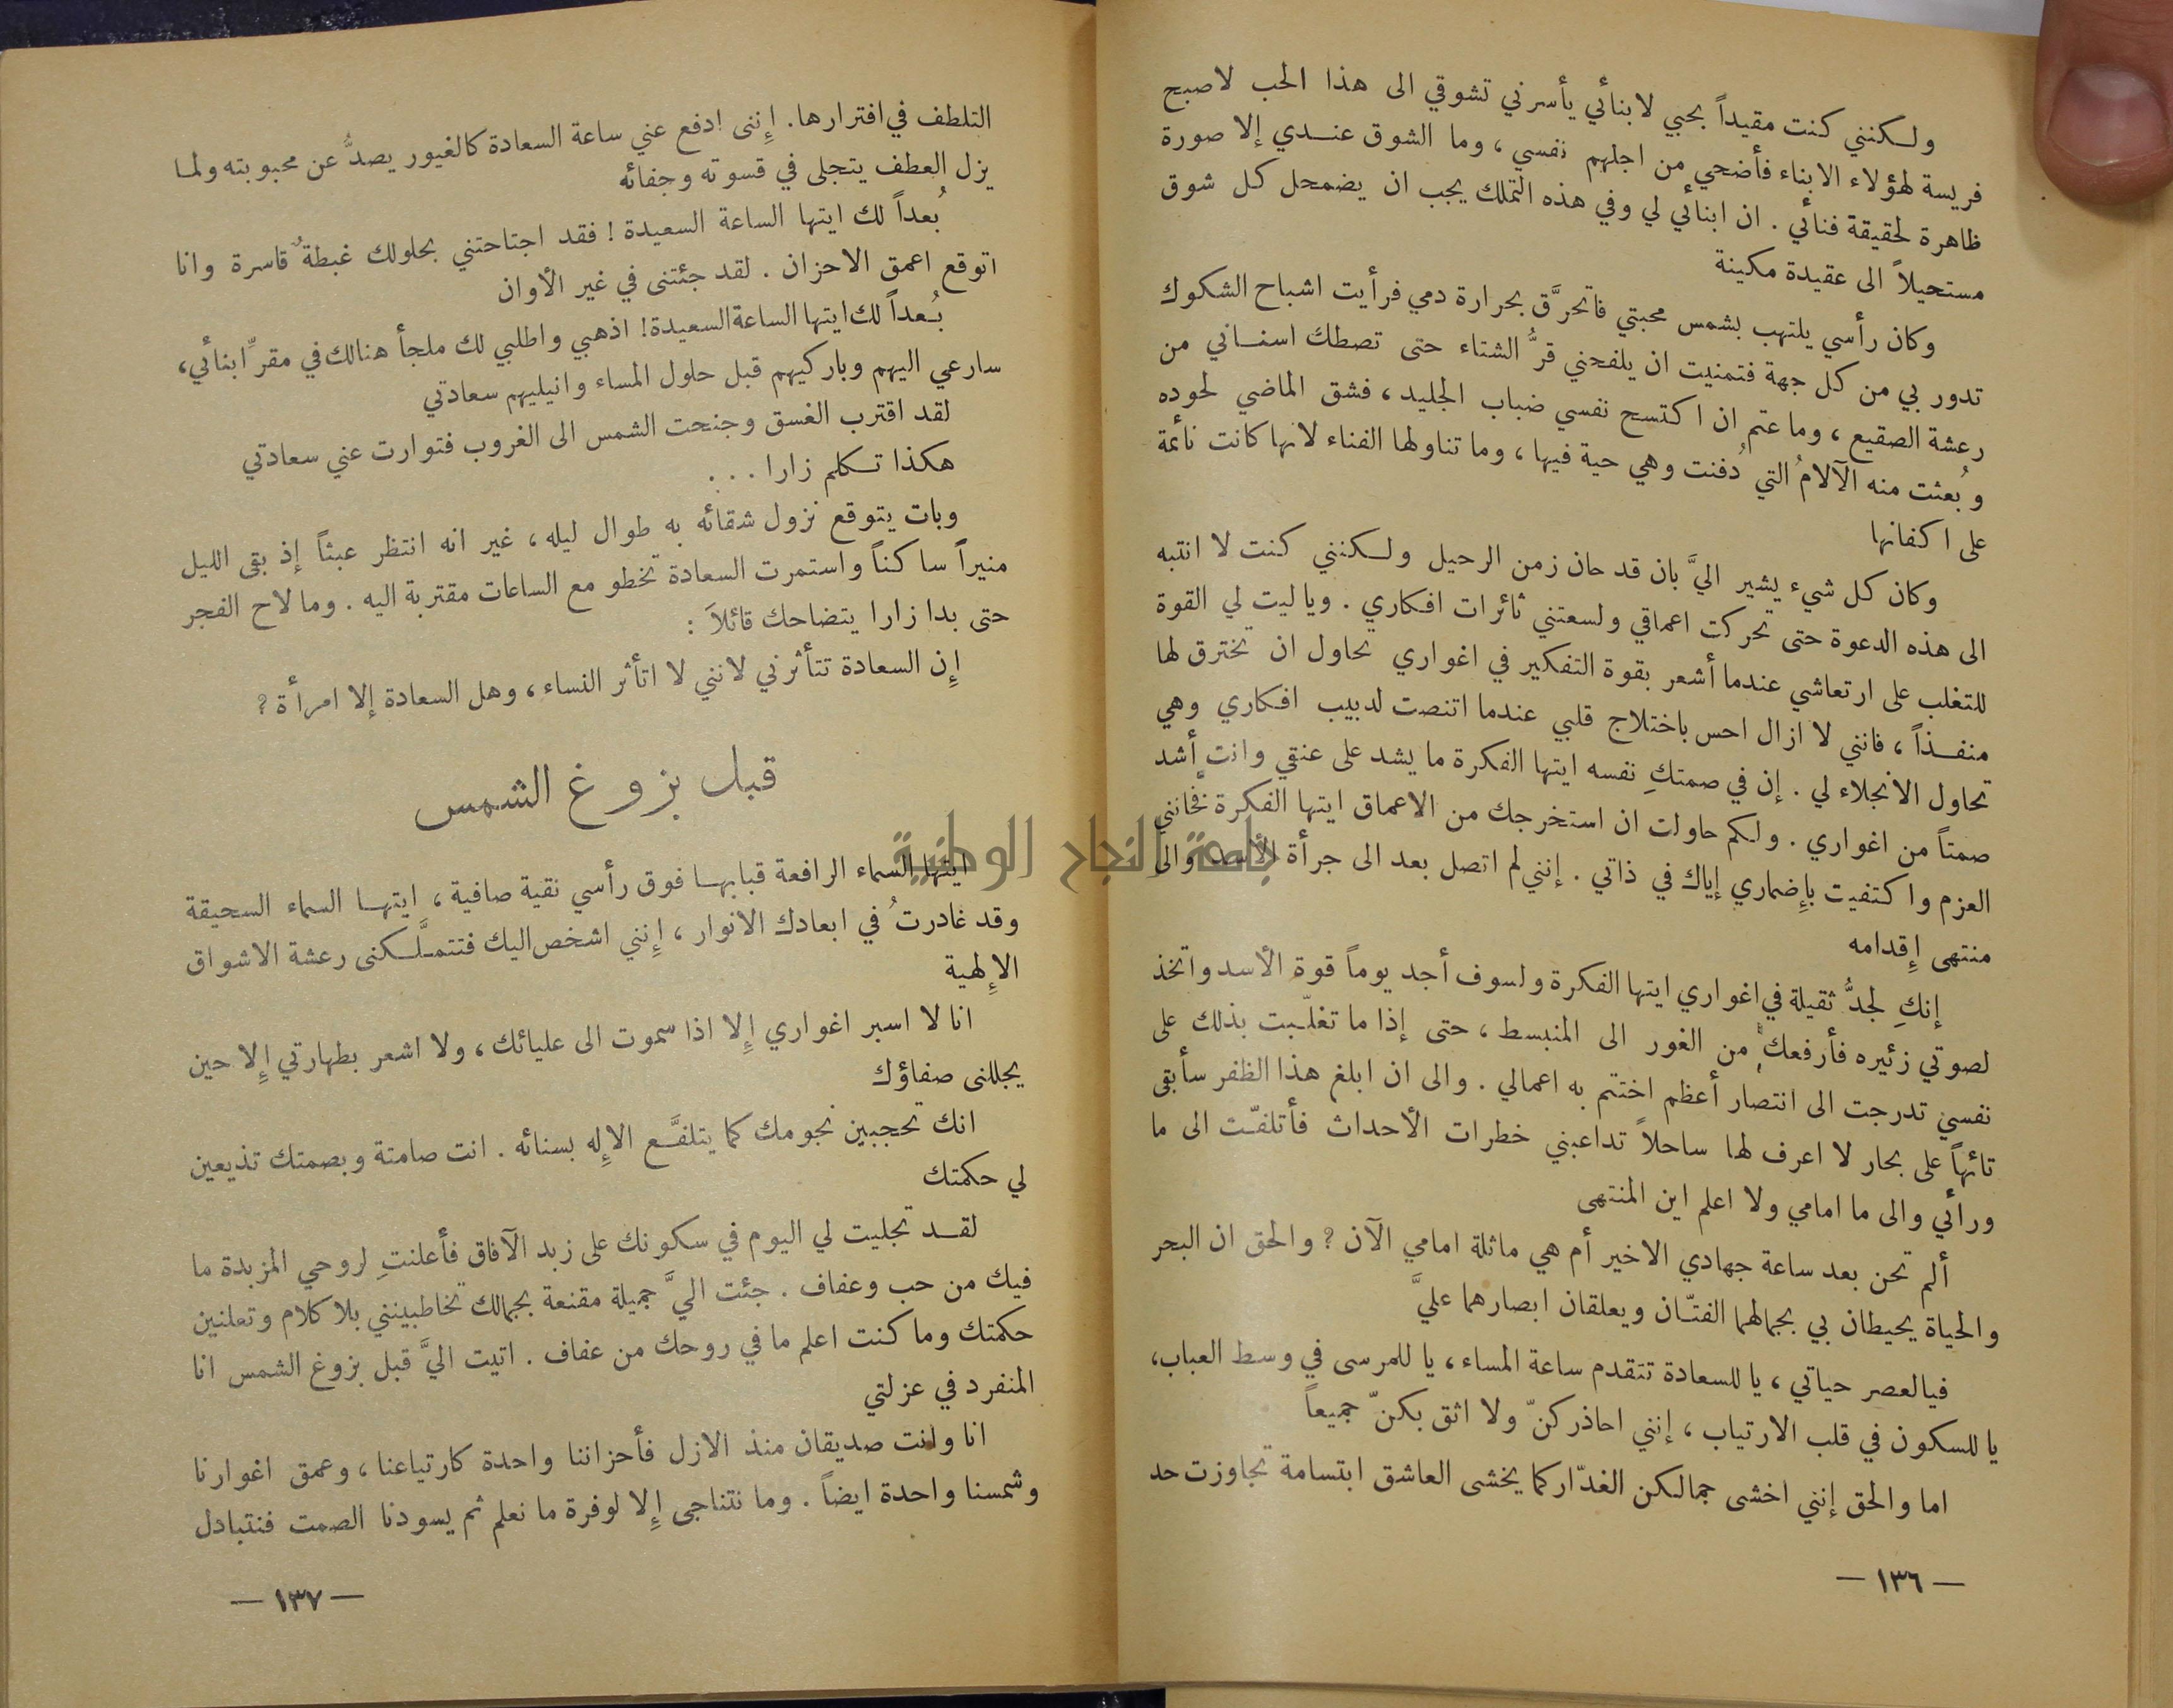 ولكنني كنت مقيداً بحبي لابنائي يأسرني تشوقي الى هذا الحب لاصبح
فريسة لهؤلاء الابناء فأضحي من اجلهم نفسي، وما الشوق عندي إلا صورة
ظاهرة لحقيقة فنائي. ان ابنائي لي وفي هذه التملك يجب ان يضمحل كل شوق
مستحيلاً الى عقيدة مكينة
وكان رأسي يلتهب بشمس محبتي فاتحرَّق بحرارة دمي فرأيت اشباح الشكوك
تدور بي من كل جهة فتمنيت ان يلفحني قرُّ الشتاء حتى تصطك اسناني من
رعشة الصقيع، وما عتم ان اكتسح نفسي ضباب الجليد، فشق الماضي لحوده
وبُعثت منه الآلامُ التي دُفنت وهي حية فيها، وما تناولها الفناء لانها كانت نائمة
على اكفانها
وكان كل شيء يشير اليَّ بان قد حان زمن الرحيل ولكنني كنت لا انتبه
الى هذه الدعوة حتى تحركت اعماقي ولسعتني ثائرات افكاري. ويا ليت لي القوة
للتغلب على ارتعاشي عندما أشعر بقوة التفكير في اغواري تحاول ان تخترق لها
منفذاً، فانني لا ازال احس باختلاج قلبي عندما اتنصت لدبيب افكاري وهي
تحاول الانجلاء لي. إن في صمتكِ نفسه ايتها الفكرة ما يشد على عنقي وانتِ أشد
صمتاً من اغواري. ولكم حاولت ان استخرجك من الاعماق ايتها الفكرة فخانني
العزم واكتفيت بإضماري إياك في ذاتي. إنني لم اتصل بعد الى جرأة الأسد والى
منتهى إقدامه
إنكِ لجدُّ ثقيلة في اغواري ايتها الفكرة ولسوف أجد يوماً قوة الأسد واتخذ
لصوتي زئيره فأرفعك من الغور الى المنبسط، حتى إذا ما تغلّبت بذلك على
نفسي تدرجت الى انتصار أعظم اختتم به اعمالي. والى ان ابلغ هذا الظفر سأبقى
تائهاً على بحار لا اعرف لها ساحلاً تداعبني خطرات الأحداث فأتلفّت الى ما
ورائي والى ما امامي ولا اعلم اين المنتهى
ألم تحن بعد ساعة جهادي الاخير أم هي ماثلة امامي الآن؟ والحق ان البحر
والحياة يحيطان بي بجمالهما الفتّان ويعلقان ابصارهما عليَّ
فيا لعصر حياتي، يا للسعادة تتقدم ساعة المساء، يا للمرسى في وسط العباب،
يا للسكون في قلب الارتياب، إنني احاذركنّ ولا اثق بكنّ جميعاً
اما والحق إنني اخشى جمالكن الغدّار كما يخشى العاشق ابتسامة تجاوزت حد
— ١٣٦ —
التلطف في افترارها. إنني ادفع عني ساعة السعادة كالغيور يصدُّ عن محبوبته ولما
يزل العطف يتجلى في قسوته وجفائه
بُعداً لك ايتها الساعة السعيدة! فقد اجتاحتني بحلولك غبطةٌ قاسرة وانا
اتوقع اعمق الاحزان. لقد جئتني في غير الأوان
بُعداً لك ايتها الساعة السعيدة! اذهبي واطلبي لك ملجأ هنالك في مقرّ ابنائي،
سارعي اليهم وباركيهم قبل حلول المساء وانيليهم سعادتي
لقد اقترب الغسق وجنحت الشمس الى الغروب فتوارت عني سعادتي
هكذا تكلم زارا ...
وبات يتوقع نزول شقائه به طوال ليله، غير انه انتظر عبثاً إذ بقي الليل
منيراً ساكناً واستمرت السعادة تخطو مع الساعات مقتربة اليه. وما لاح الفجر
حتى بدا زارا يتضاحك قائلاً:
إن السعادة تتأثرني لانني لا اتأثر النساء، وهل السعادة إلا امرأة؟
قبل بزوغ الشمس
ايتها السماء الرافعة قبابها فوق رأسي نقية صافية، ايتها السماء السحيقة
وقد غادرتُ في ابعادك الانوار، إنني اشخص اليك فتتملَّكني رعشة الاشواق
الإلهية
انا لا اسبر اغواري إلا اذا سموت الى عليائك، ولا اشعر بطهارتي إلا حين
يجللني صفاؤك
انك تحجبين نجومك كما يتلفَّع الإله بسنائه. انت صامتة وبصمتك تذيعين
لي حكمتك
لقد تجليت لي اليوم في سكونك على زبد الآفاق فأعلنتِ لروحي المزبدة ما
فيك من حب وعفاف. جئت اليَّ جميلة مقنعة بجمالك تخاطبينني بلا كلام وتعلنين
حكمتك وما كنت اعلم ما في روحك من عفاف. اتيت اليَّ قبل بزوغ الشمس انا
المنفرد في عزلتي
انا وانت صديقان منذ الازل فأحزاننا واحدة كارتياعنا، وعمق اغوارنا
وشمسنا واحدة ايضاً. وما نتناجى إلا لوفرة ما نعلم ثم يسودنا الصمت فنتبادل
— ١٣٧ —
جامعة النجاح الوطنية